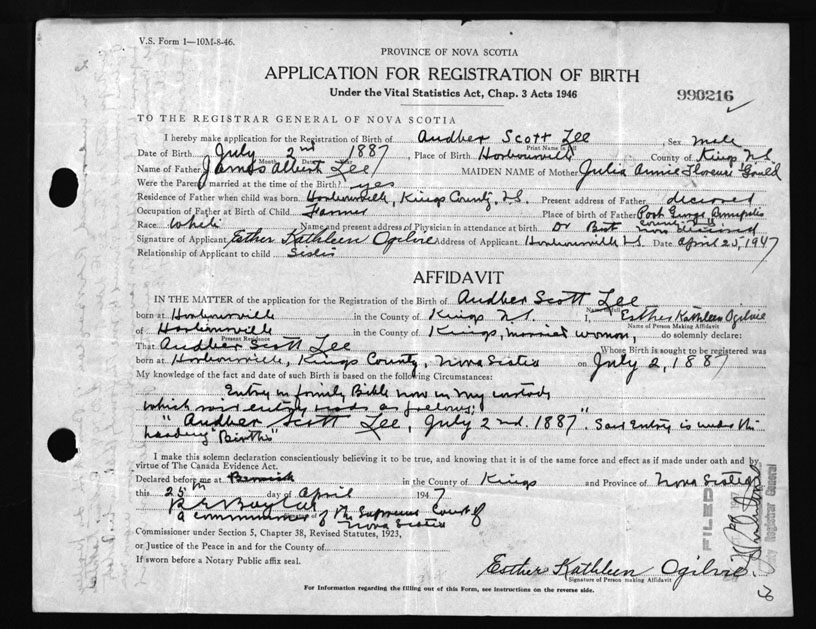 V.S. Form 1—10M-8-46.
PROVINCE OF NOVA SCOTIA
APPLICATION FOR REGISTRATION OF BIRTH
Under the Vital Statistics Act, Chap. 3 Acts 1946
990216
TO THE REGISTRAR GENERAL OF NOVA SCOTIA
I hereby make application for the Registration of Birth of Audber Scott Lee , Sex male
Print Name in full
Date of Birth July 2nd 1887 , Place of Birth Harbourville County of Kings N.S.
Month Date
Name of Father James Albert Lee MAIDEN NAME of Mother Julia Annie Florence Gould
Were the Parents married at the time of the Birth? yes
Residence of Father when child was born Harbourville, Kings County, N.S. Present address of Father deceased
Occupation of Father at Birth of Child Farmer Place of birth of Father Port George Annapolis
County
Race White Name and present address of Physician in attendance at birth Dr now deceased
Signature of Applicant Esther Kathleen Ogilvie Address of Applicant Harbourville N.S. Date April 25, 1947
Relationship of Applicant to child Sister
AFFIDAVIT
IN THE MATTER of the application for the Registration of the Birth of Audber Scott Lee
Name in full
born at Harbourville in the County of Kings N.S. I, Esther Kathleen Ogilvie
Name of Person Making Affidavit
of Harbourville in the County of Kings, married woman, do solemnly declare:
Present Residence
That Audber Scott Lee Whose Birth is sought to be registered was
born at Harbourville, Kings County, Nova Scotia on July 2, 1887
My knowledge of the fact and date of such Birth is based on the following Circumstances:
Entry in family Bible now in my custody
which said entry reads as follows:
"Audber Scott Lee, July 2nd. 1887". Said Entry is under the
heading "Births"
I make this solemn declaration conscientiously believing it to be true, and knowing that it is of the same force and effect as if made under oath and by
virtue of The Canada Evidence Act.
Declared before me at Berwick in the County of Kings and Province of Nova Scotia
this 25th day of April 1947
A commissioner of the Supreme Court of
Nova Scotia
Commissioner under Section 5, Chapter 38, Revised Statutes, 1923,
or Justice of the Peace in and for the County of
If sworn before a Notary Public affix seal.
Esther Kathleen Ogilvie
Signature of Person making Affidavit
For Information regarding the filling out of this Form, see instructions on the reverse side.
FILED
Registrar General